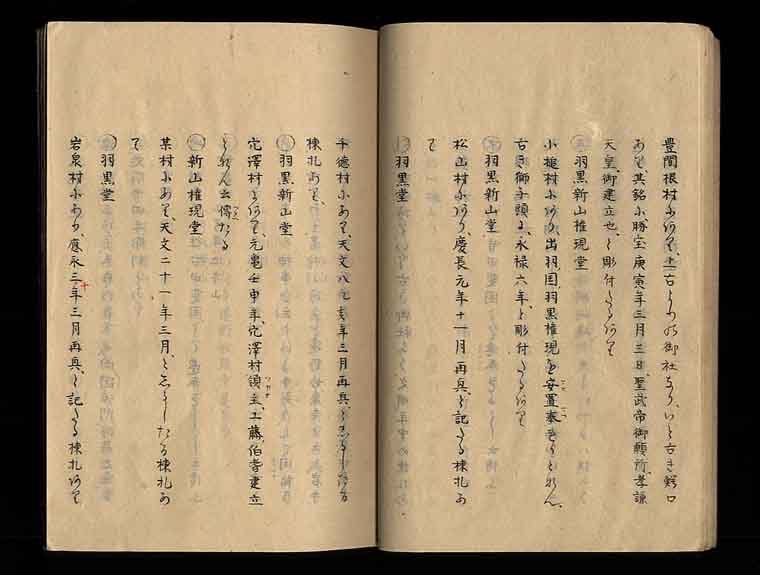 豊間根村にあり、十二古とりの御社なり、いと古き鰐口
あり、其銘に勝宝庚寅年三月三日、聖武帝御願所、孝謙
天皇、御建立也、と彫付たるあり
〇羽黒新山権現堂
小槌村にあり、出羽国、羽黒権現を安置奉るといへり、
古き獅子頭に、永禄六年、と彫付たるあり
〇羽黒新山堂
松山村にあり、慶長元年十一月再興、と記たる棟札あ
り
〇羽黒堂
千徳村にあり、天文八九亥年三月再興、としるしたる
棟札あり
〇羽黒新山堂
宅澤村にあり、元亀壬申年、宅澤村領主、工藤伯耆建立
といへり
〇新山権現堂
某村にあり、天文二十一年三月、としるしたる棟札あ
り
〇羽黒堂
岩泉村にあり、應永三十年三月再興、と記たる棟札あり